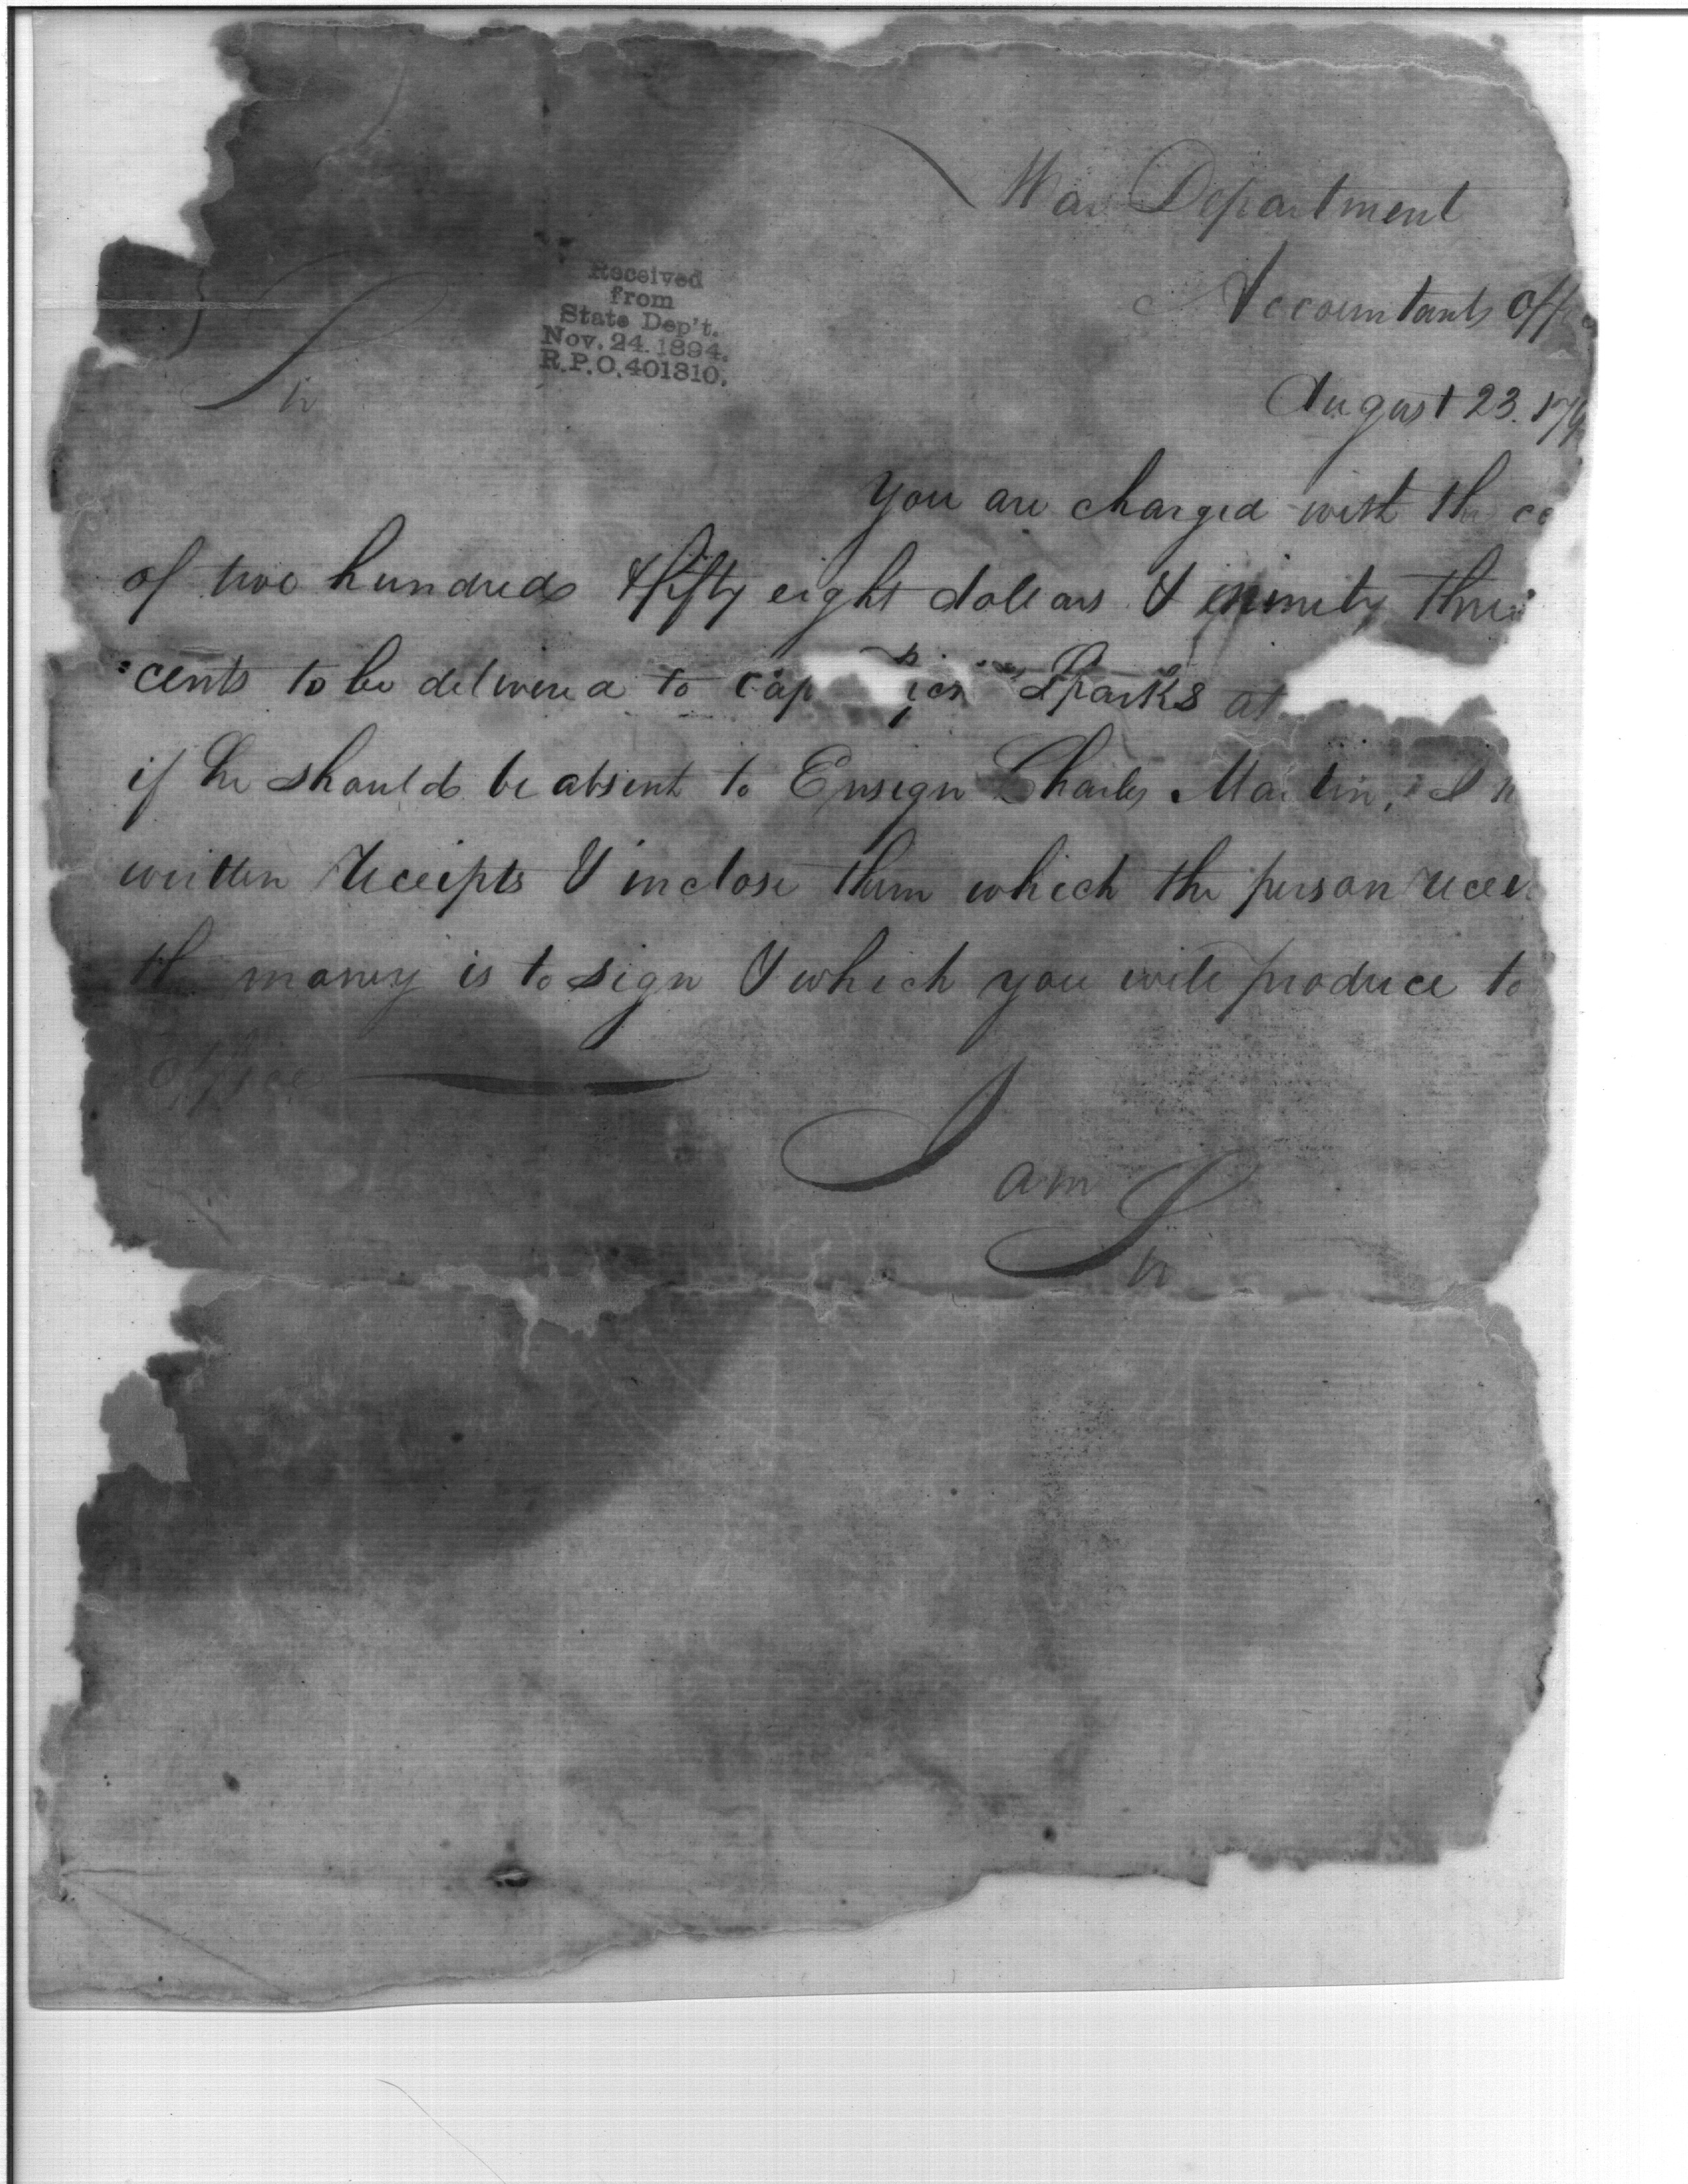 War Department
Accountants Offi
August 23. 179
Received
from
State Dep't.
Nov. 24. 1894.
R.P.O. 401810.
Sir
You are charged with the
of two hundred & fifty eight dollars & ninety three
cents to be delivered to Cap Sparks at
if he should be absent to Ensign Charles Martin, I
written receipts & inclose them which the person recei
the money is to sign & which you will produce to
Office
I am
Sir